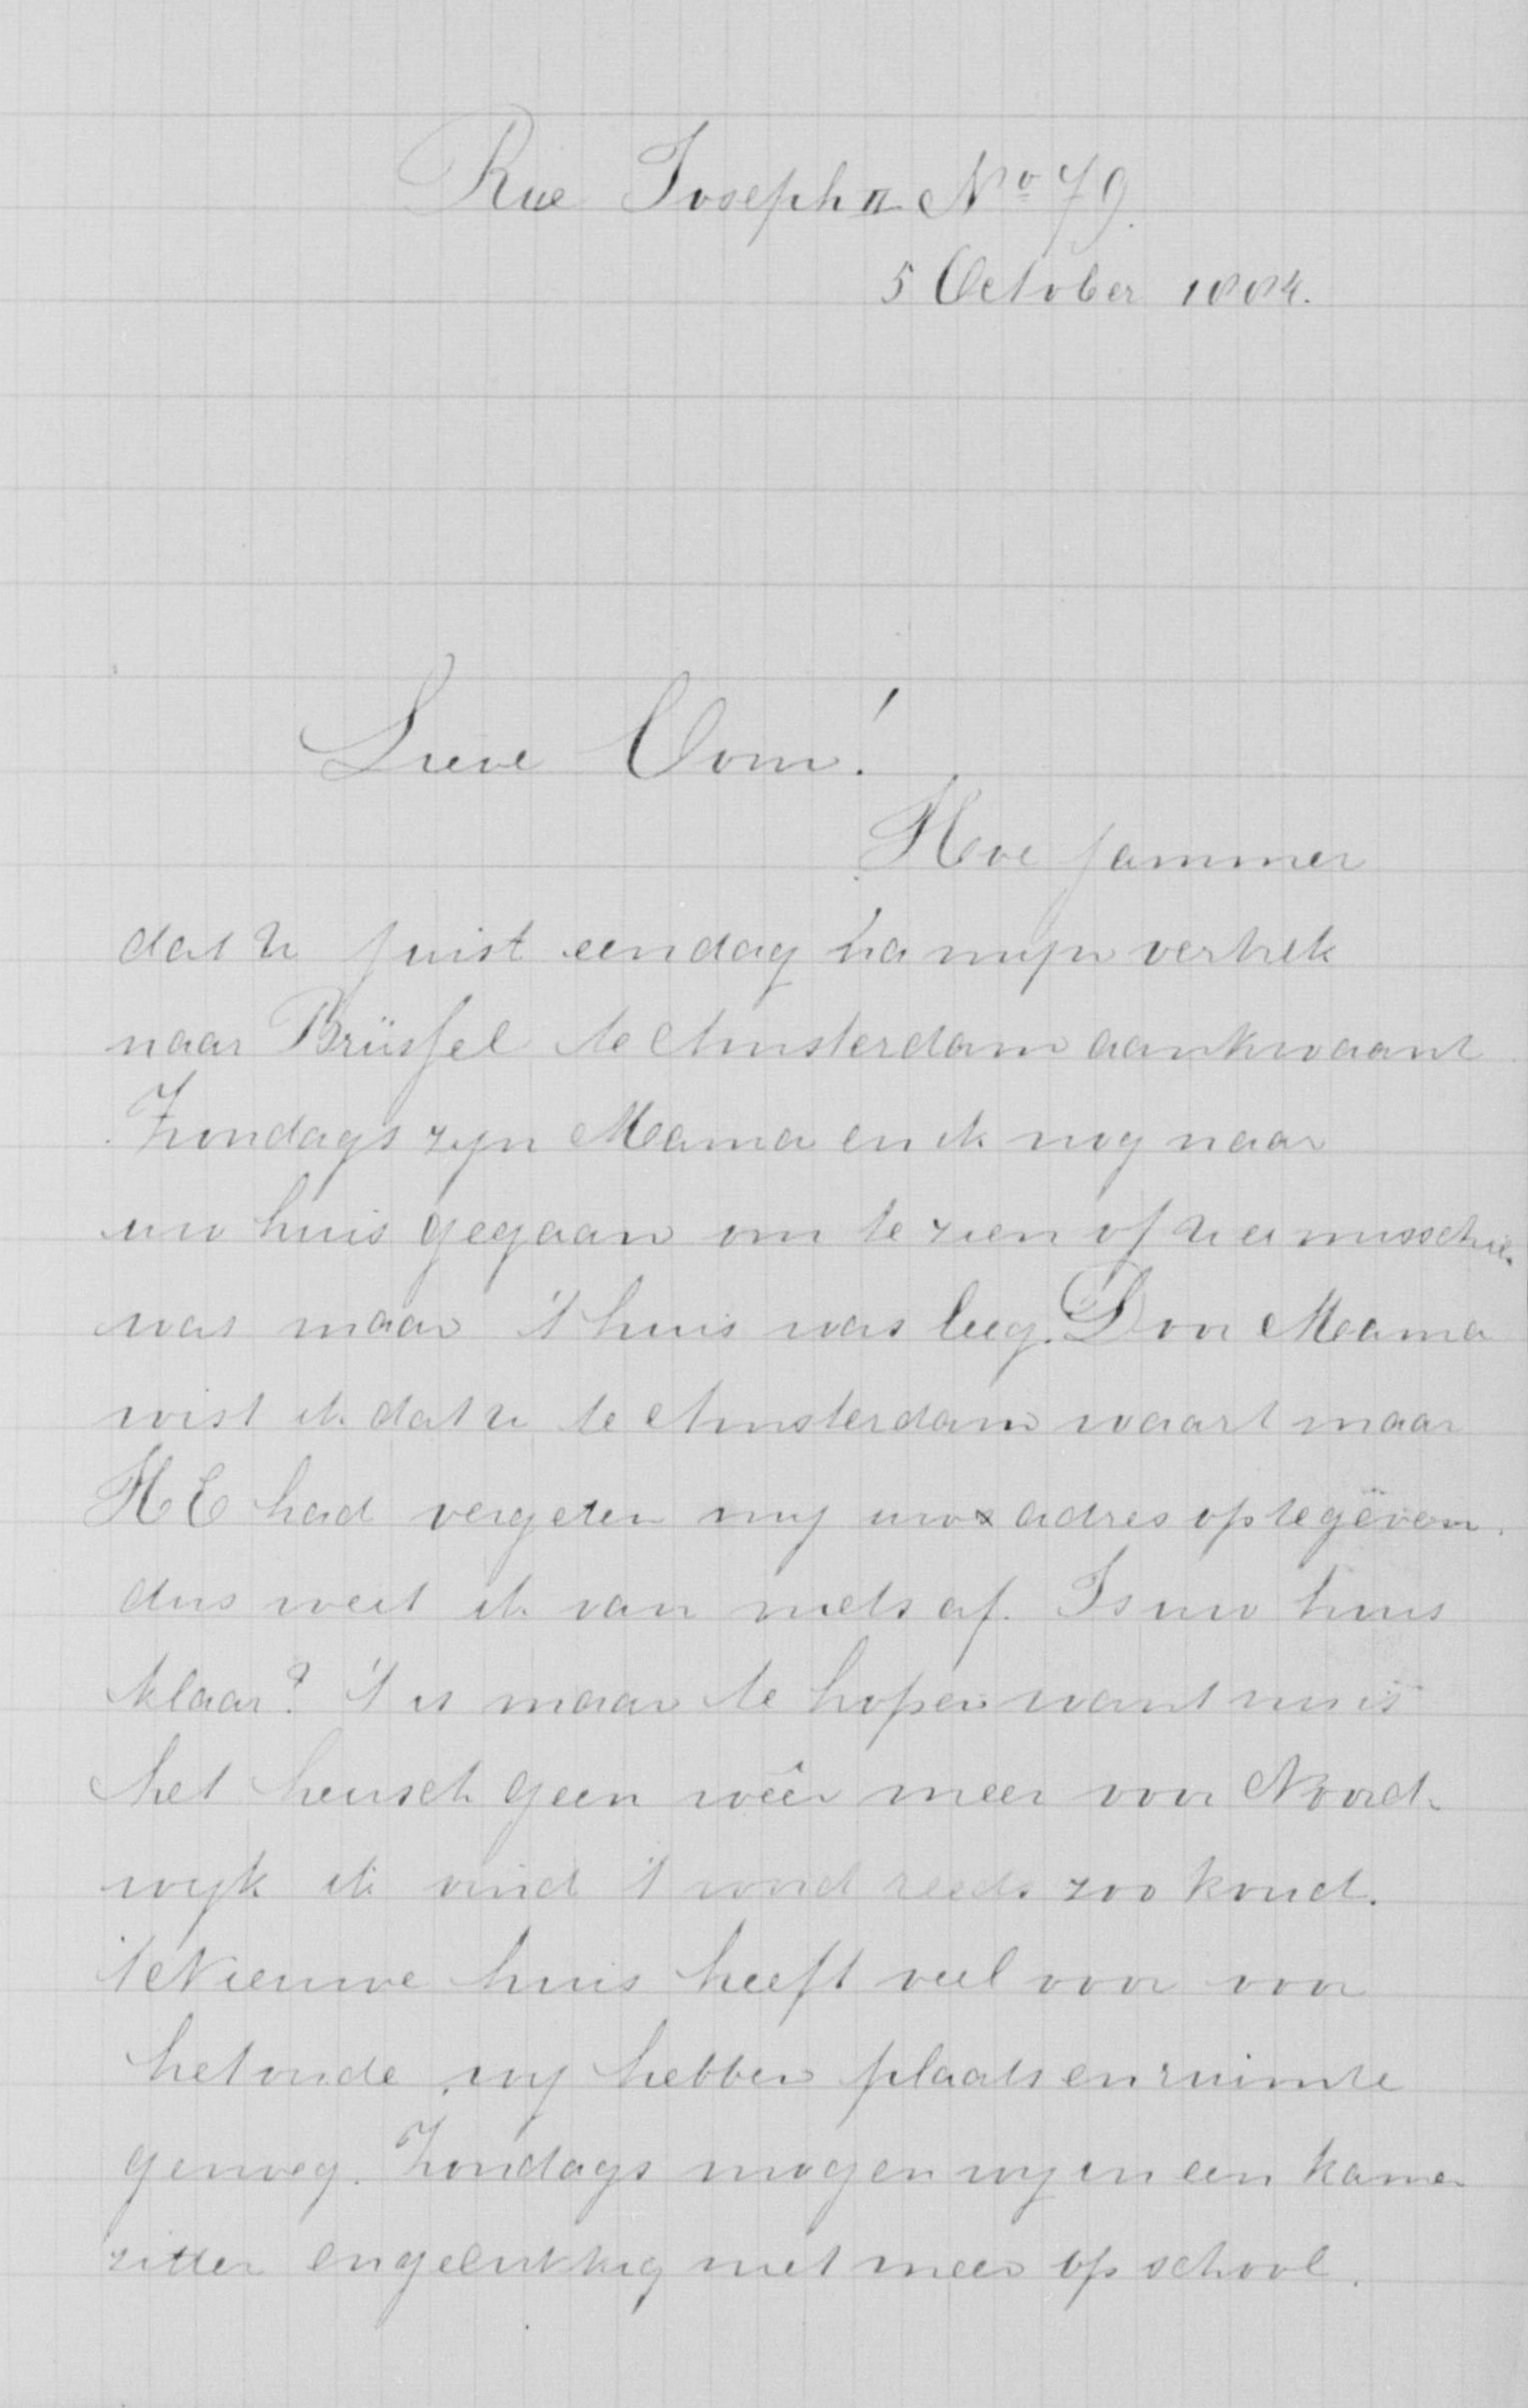 Rue Joseph II No 79.
5 October 1884.
Lieve Oom!
Hoe jammer
dat U juist een dag na mijn vertrek
naar Brüssel te Amsterdam aankwaamt
Zondags zijn Mama en ik nog naar
uw huis gegaan om te zien of U er misschie
was maar 't huis was leeg. Door Mama
wist ik dat U te Amsterdam waart maar
HE had vergeten mij uw adres op te geven.
dus weet ik van niets af. Is uw huis
klaar? 't is maar te hopen want nu is
het heusch geen wêer meer voor Noord-
wijk ik vind 't word reeds zoo koud.
't Nieuwe huis heeft veel voor voor
het oude, wij hebben plaats en ruimte
genoeg. Zondags mogen wij in een kamer
zitten en gelukkig niet meer op school.